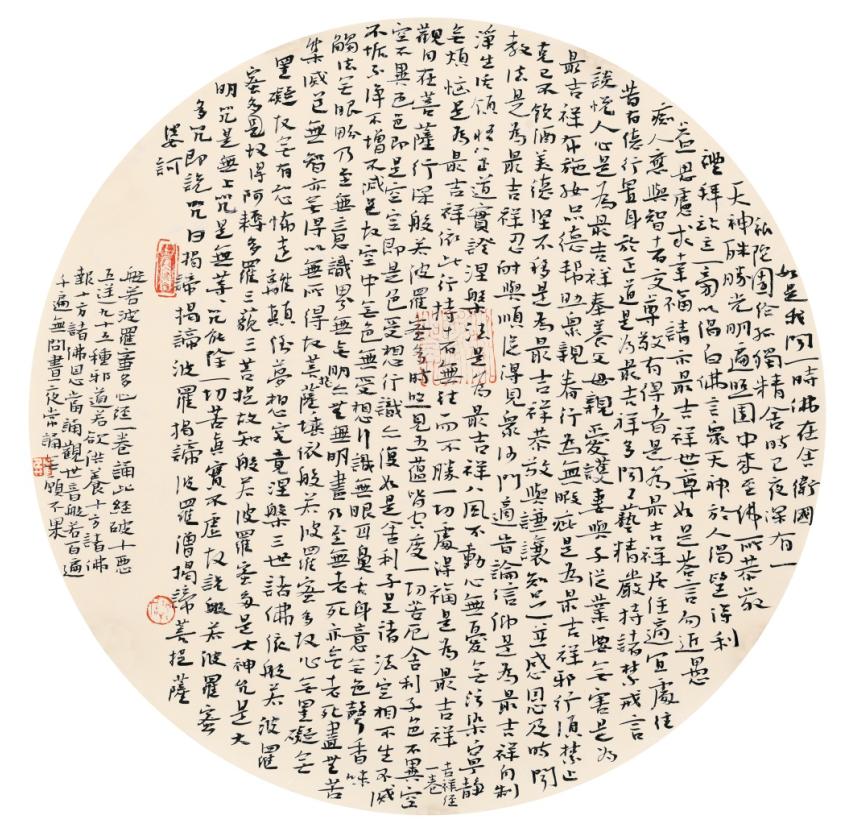 如是我聞一時佛在舍衛國
祇陀園給孤獨精舍時已夜深有一
天神殊勝光明遍照園中來至佛所恭敬
禮拜站立一旁以偈白佛言眾天神於人渴望得利
益思慮求幸福請示最吉祥世尊如是答言勿近愚
痴人應與智者交尊敬有得者是為最吉祥居住適宜處往
昔有德行置身於正道是為最吉祥多聞工藝精嚴持諸禁戒言
談悅人心是為最吉祥奉養父母親愛護妻與子從業要無害是為
最吉祥布施好品德幫助眾親眷行為無瑕疵是為最吉祥邪行須禁止
克己不飲酒美德堅不移是為最吉祥恭敬與謙讓知足並感恩及時聞
教法是為最吉祥忍耐與順從得見眾沙門適當論信仰是為最吉祥自制
淨生活領悟八正道實證涅槃法是為最吉祥八風不動心無憂無污染寧靜
無煩惱是為最吉祥依此行持者無往而不勝一切處得福是為最吉祥 吉祥經一卷
觀自在菩薩行深般若波羅蜜多時照見五蘊皆空度一切苦厄舍利子色不異空
空不異色色即是空空即是色受想行識亦復如是舍利子是諸法空相不生不滅
不垢不淨不增不減是故空中無色無受想行識無眼耳鼻舌身意無色聲香味
觸法無眼界乃至無意識界無無明亦無無明盡乃至無老死亦無老死盡無苦
集滅道無智亦無得以無所得故菩提薩埵依般若波羅蜜多故心無罣礙無
罣礙故無有恐怖遠離顛倒夢想究竟涅槃三世諸佛依般若波羅
蜜多故得阿耨多羅三藐三菩提故知般若波羅蜜多是大神咒是大
明咒是無上咒是無等咒能除一切苦真實不虛故說般若波羅蜜
多咒即說咒曰揭諦揭諦波羅揭諦波羅僧揭諦菩提薩
婆訶
般若波羅蜜多心經一卷誦此經破十惡
五逆九十五種邪道若欲供養十方諸佛
報十方諸佛恩當誦觀世音般若百遍
千遍無問晝夜常誦無願不果